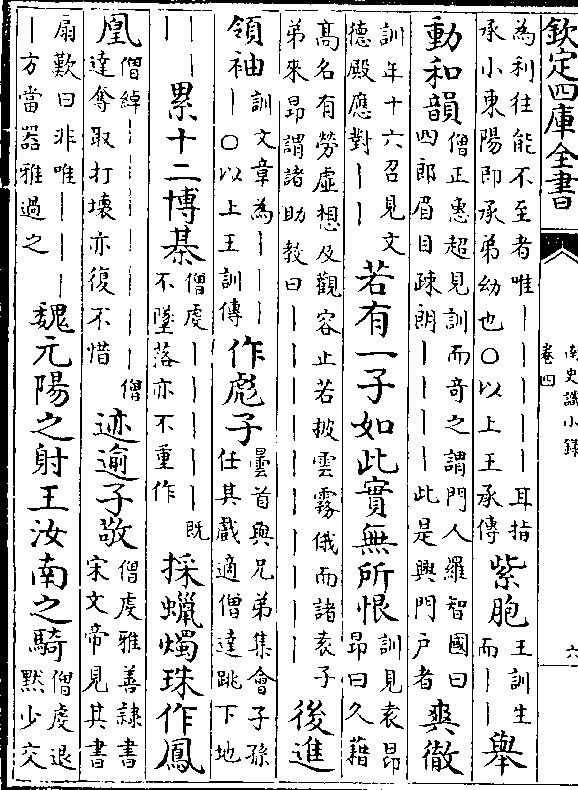 欽定四庫全書
南史識小錄
卷四
六
為利往能不至者唯｜｜｜｜｜耳指
承小東陽即承弟幼也〇以上王承傳
紫胞
王訓生
而｜｜
舉
動和韻
僧正惠超見訓而竒之謂門人羅智國曰
四郎眉目踈朗｜｜｜｜此是興門戶者
爽徹
訓年十六召見文
德殿應對｜｜
若有一子如此實無所恨
訓見袁昂
昂曰久藉
髙名有勞虛想及觀容止若披雲霧俄而諸袁子
弟來昂謂諸助教曰｜｜｜｜｜｜｜｜｜
後進
領袖
訓文章為｜｜｜｜
｜〇以上王訓傳
作彪子
曇首與兄弟集會子孫
任其戲適僧達跳下地
｜｜
｜｜
累十二博棊
僧虔｜｜｜｜｜既
不墜落亦不重作
採蠟燭珠作鳳
凰
僧綽｜｜｜｜｜｜｜僧
達奪取打壞亦復不惜
迹逾子敬
僧虔雅善隷書
宋文帝見其書
扇歎曰非唯｜｜｜｜
｜方當器雅過之
魏元陽之射王汝南之騎
僧虔退
默少交